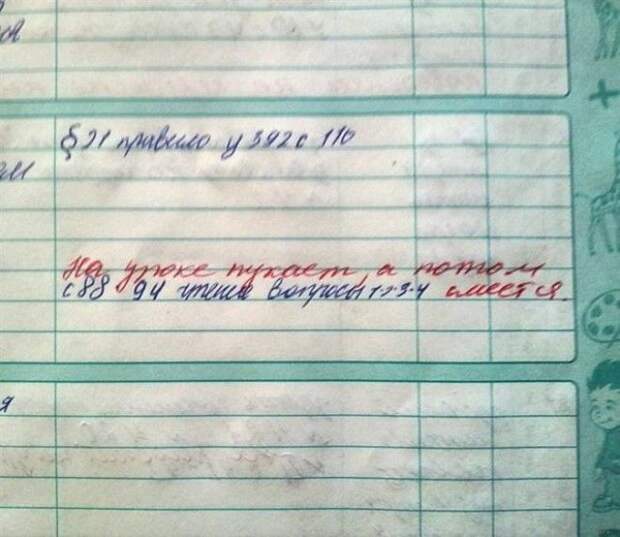 § 21 правило у 392 с 116
На уроке пукает, а потом
с 88 94 чтение вопросы 1-2-3-4 смеется.